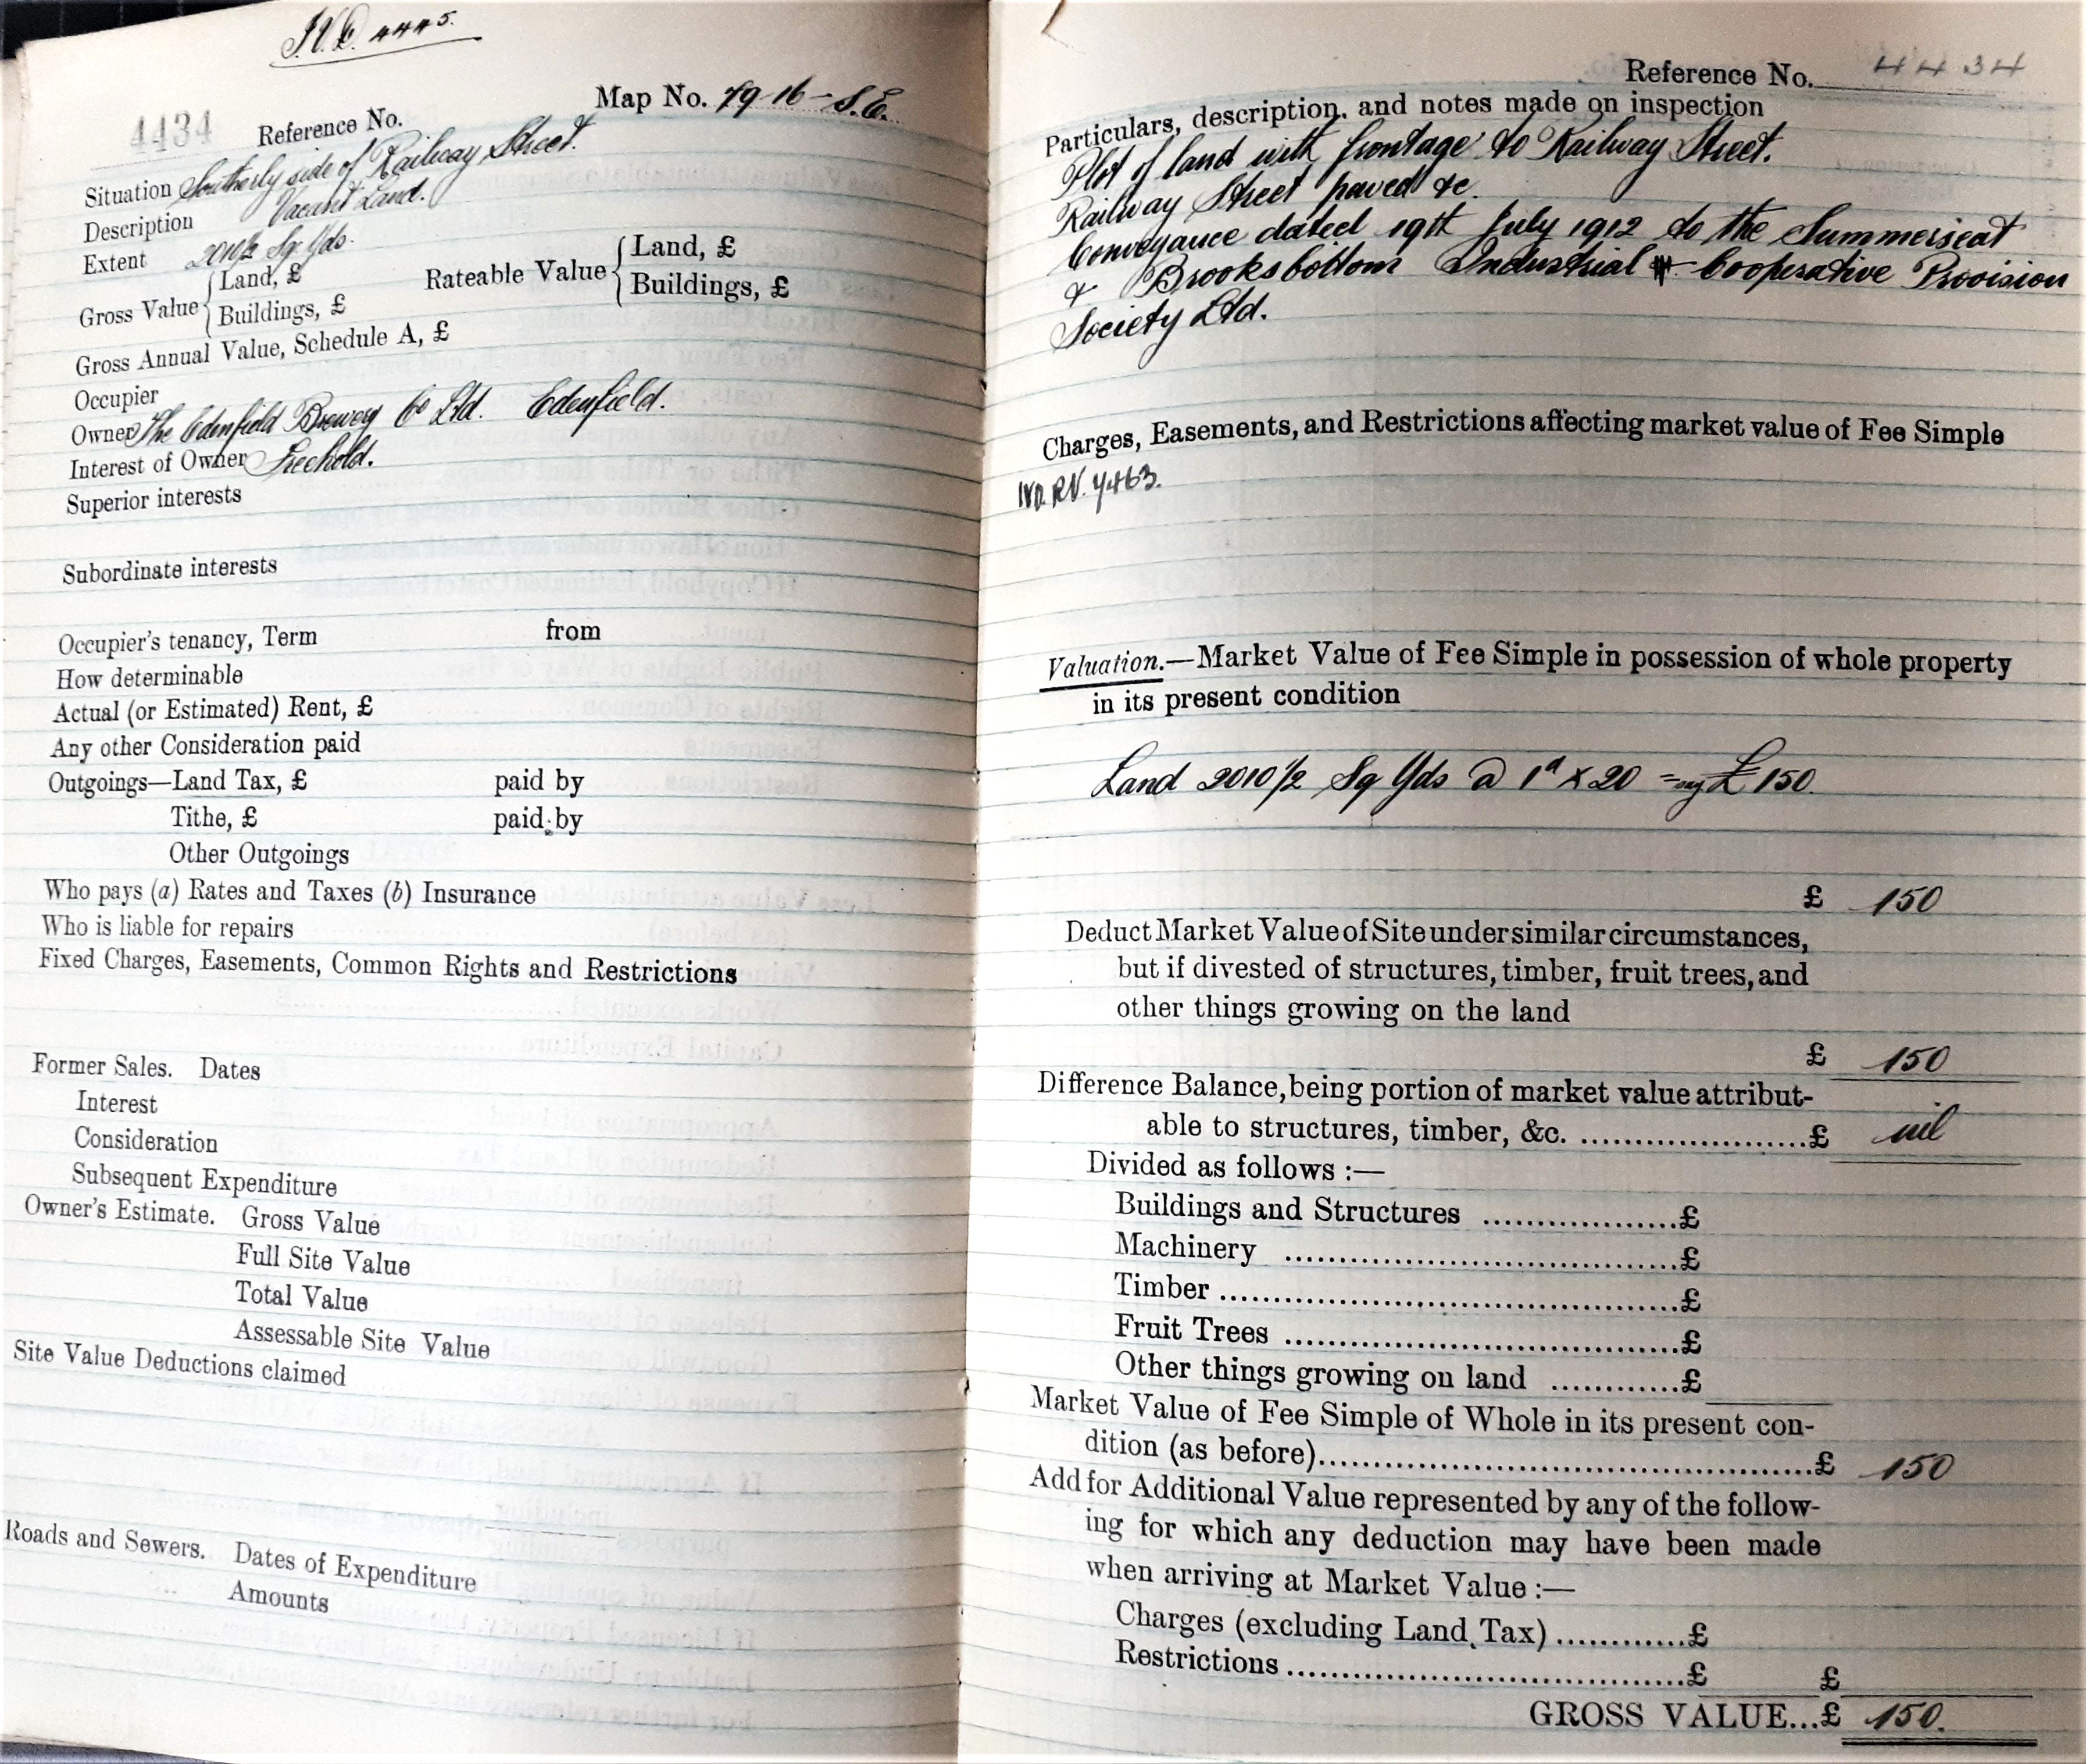 4445.
4434 Reference No. Map No. 79-16-S.E.
Situation Southerly side of Railway Street.
Description Vacant Land.
Extent 2010½ Sq Yds.
Gross Value { Land, £ Rateable Value { Land, £
Buildings, £ Buildings, £
Gross Annual Value, Schedule A, £
Occupier
Owner The Edenfield Brewery Co Ltd. Edenfield.
Interest of Owner Freehold.
Superior interests
Subordinate interests
Occupier's tenancy, Term from
How determinable
Actual (or Estimated) Rent, £
Any other Consideration paid
Outgoings—Land Tax, £ paid by
Tithe, £ paid by
Other Outgoings
Who pays (a) Rates and Taxes (b) Insurance
Who is liable for repairs
Fixed Charges, Easements, Common Rights and Restrictions
Former Sales. Dates
Interest
Consideration
Subsequent Expenditure
Owner's Estimate. Gross Value
Full Site Value
Total Value
Assessable Site Value
Site Value Deductions claimed
Roads and Sewers. Dates of Expenditure
Amounts
Reference No. 4434
Particulars, description, and notes made on inspection
Plot of land with frontage to Railway Street.
Railway Street paved &c.
Conveyance dated 19th July 1912 to the Summerseat
& Brooksbottom Industrial Cooperative Provision
Society Ltd.
Charges, Easements, and Restrictions affecting market value of Fee Simple
IVD. RV. 4463.
Valuation.—Market Value of Fee Simple in possession of whole property
in its present condition
Land 2010½ Sq Yds @ 1d x 20 = say £150.
£ 150
Deduct Market Value of Site under similar circumstances,
but if divested of structures, timber, fruit trees, and
other things growing on the land
£ 150
Difference Balance, being portion of market value attribut-
able to structures, timber, &c. ......................£ nil
Divided as follows :—
Buildings and Structures ...................£
Machinery ......................................£
Timber ............................................£
Fruit Trees ......................................£
Other things growing on land ............£
Market Value of Fee Simple of Whole in its present con-
dition (as before)................................................£ 150
Add for Additional Value represented by any of the follow-
ing for which any deduction may have been made
when arriving at Market Value :—
Charges (excluding Land Tax) ............£
Restrictions ......................................£ £
GROSS VALUE...£ 150.